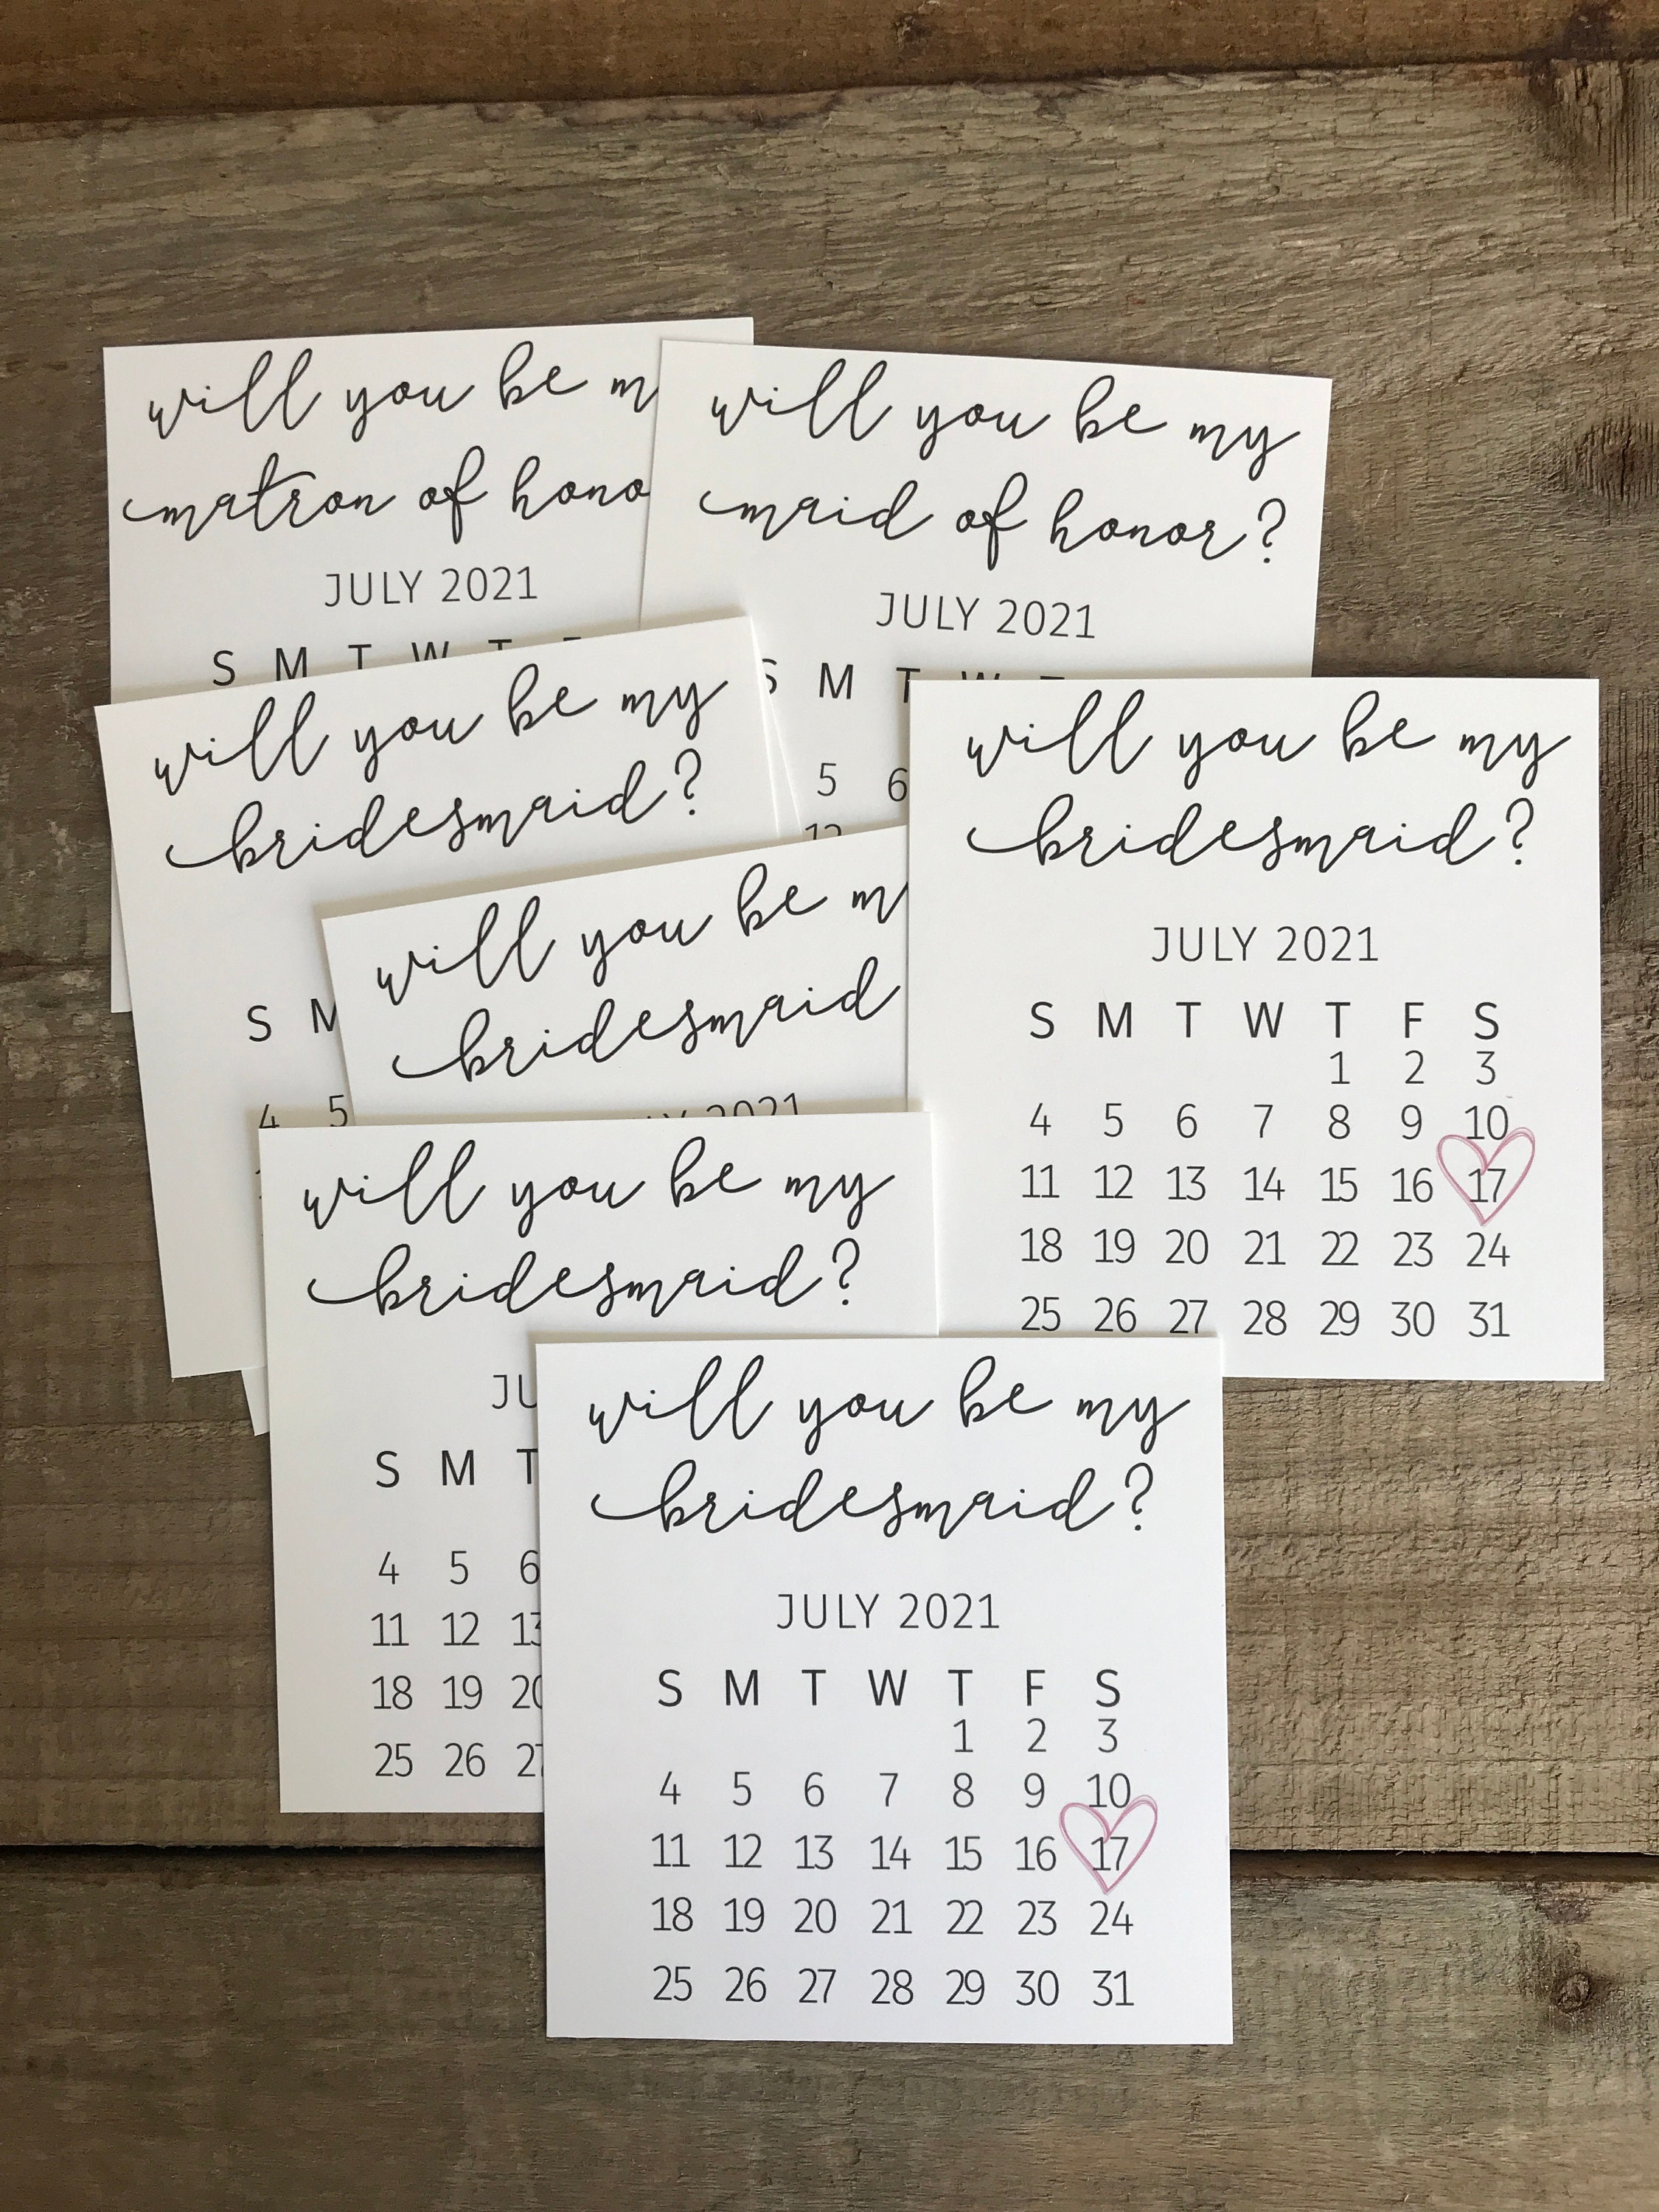 will you be m
matron of hono
JULY 2021
S M T W T
will you be my
maid of honor?
JULY 2021
S M T W T
5 6
12
will you be my
bridesmaid?
S M
4 5
will you be m
bridesmaid
2021
will you be my
bridesmaid?
JULY 2021
S M T W T F S
1 2 3
4 5 6 7 8 9 10
11 12 13 14 15 16 17
18 19 20 21 22 23 24
25 26 27 28 29 30 31
will you be my
bridesmaid?
JU
S M T
4 5 6
11 12 13
18 19 20
25 26 27
will you be my
bridesmaid?
JULY 2021
S M T W T F S
1 2 3
4 5 6 7 8 9 10
11 12 13 14 15 16 17
18 19 20 21 22 23 24
25 26 27 28 29 30 31